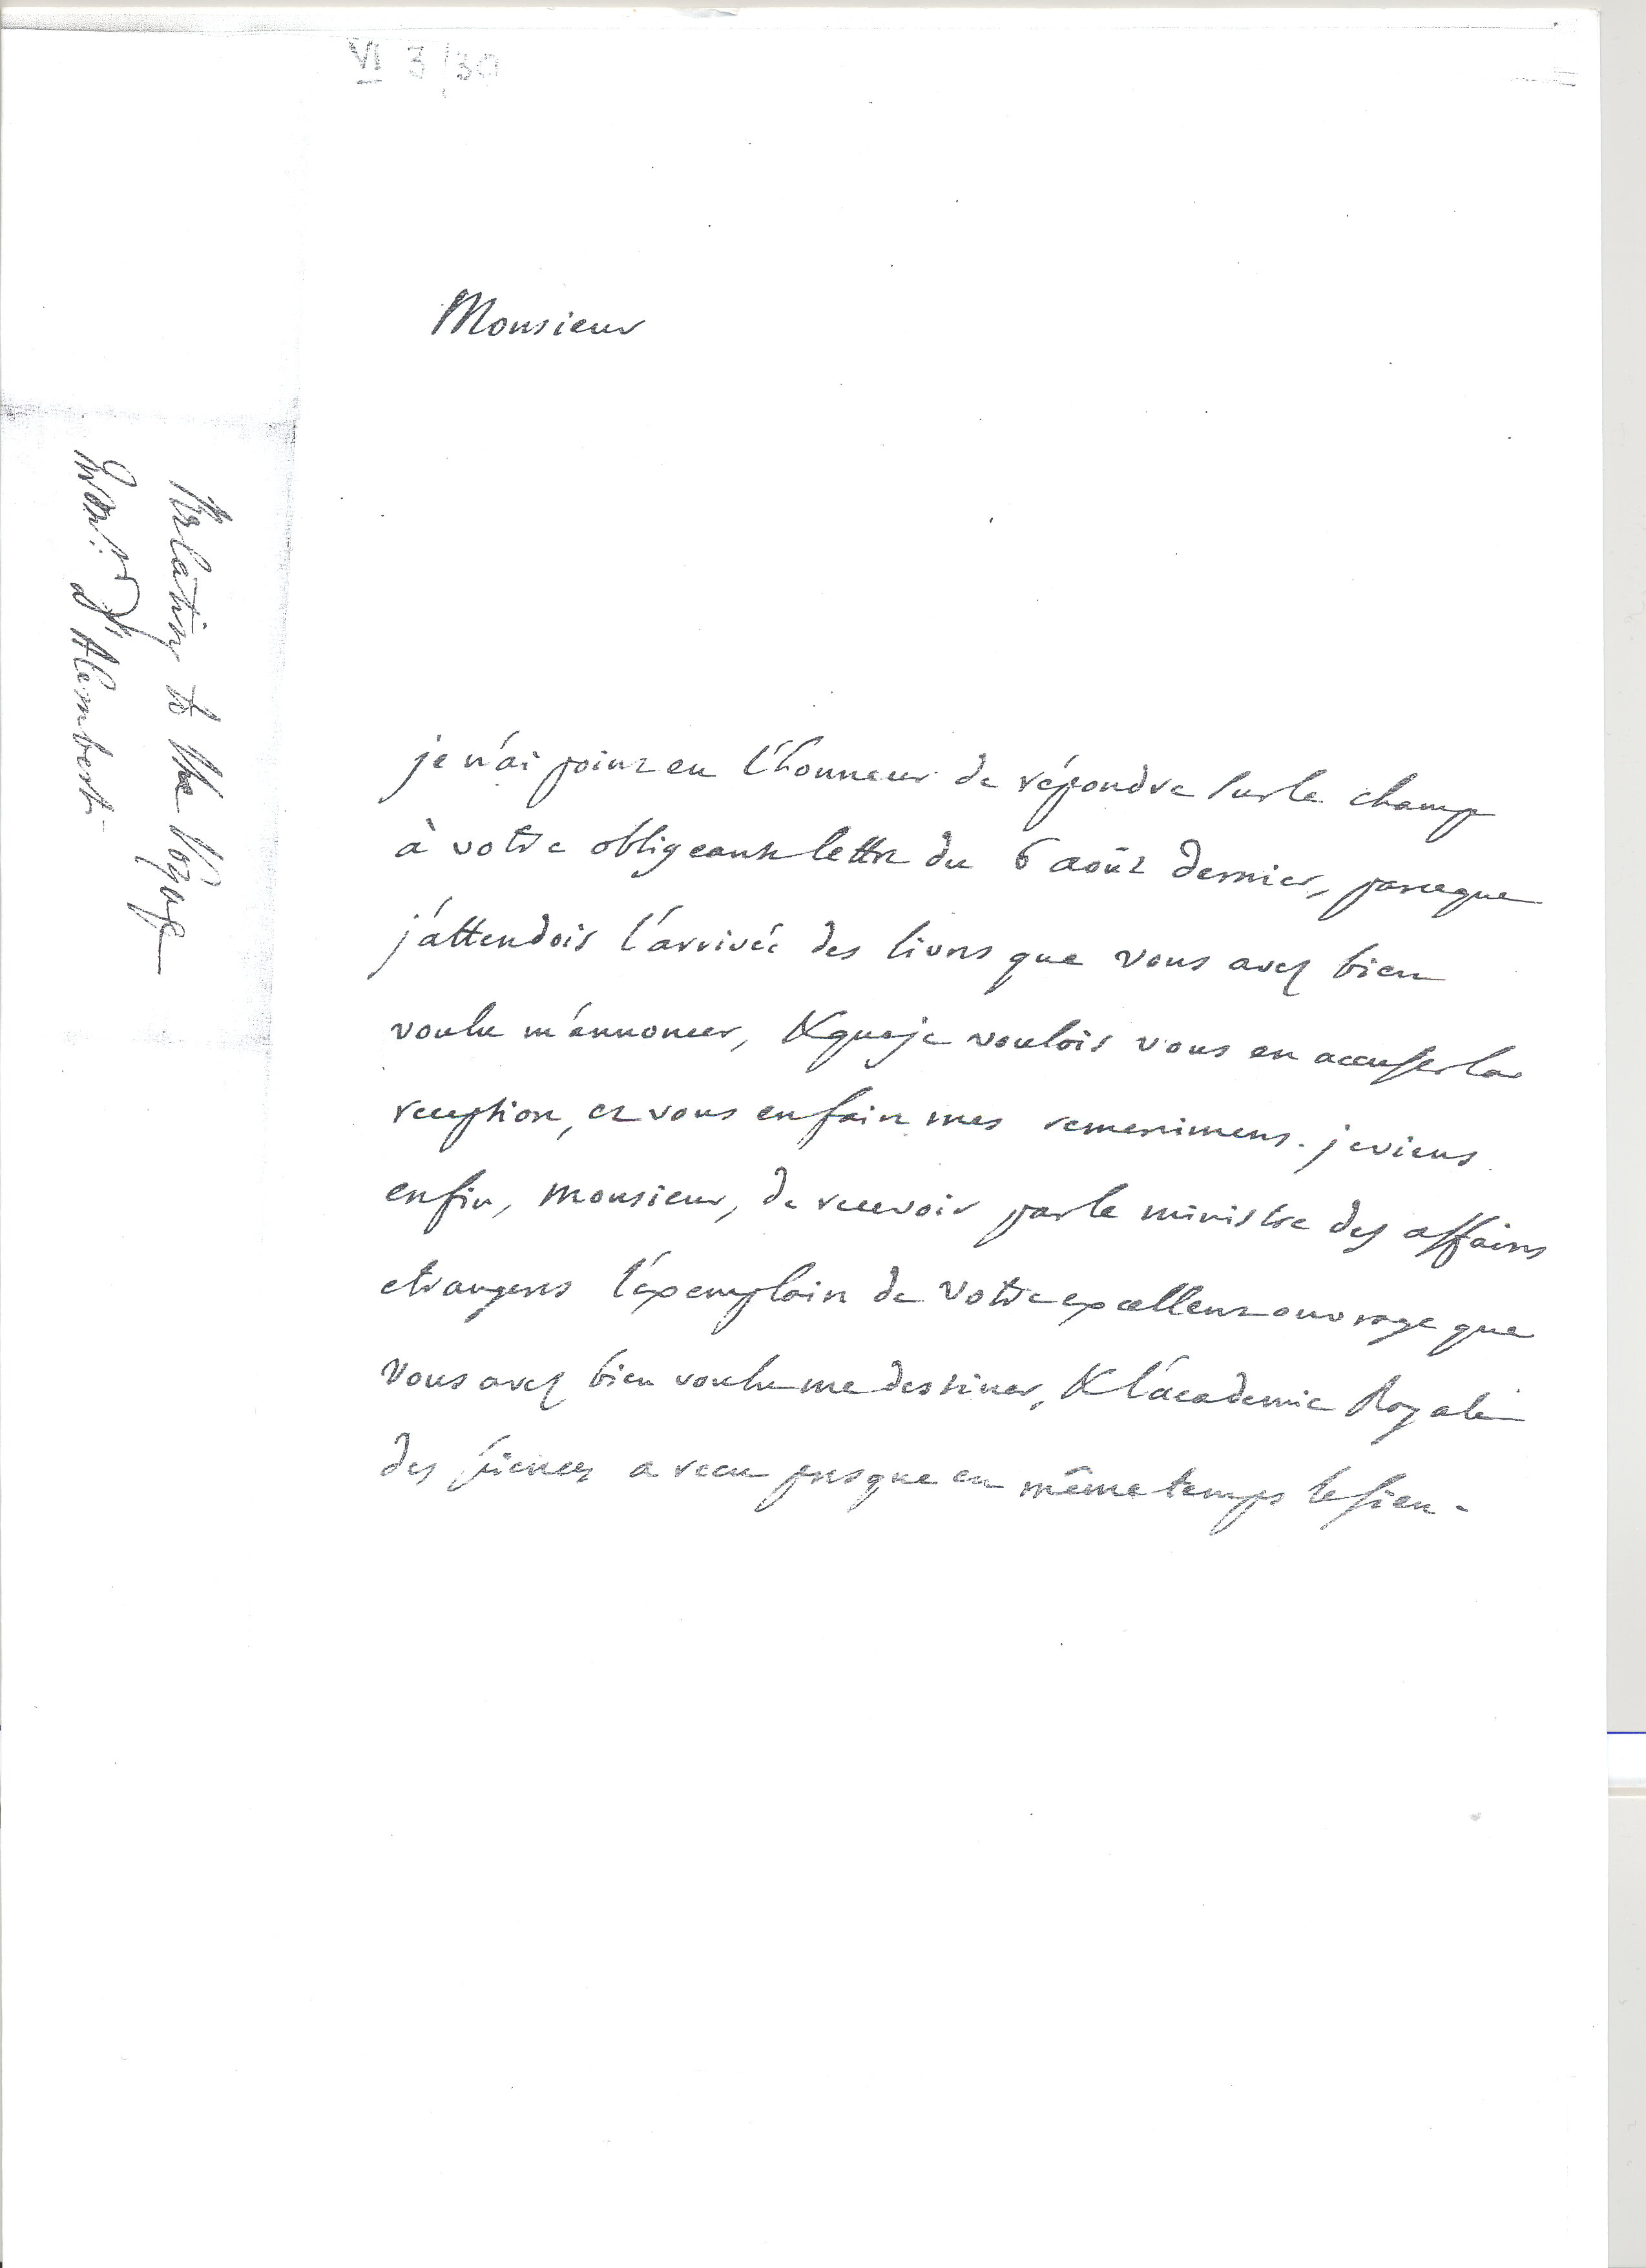 VI 3/30
Monsieur
je n'ai point eu l'honneur de répondre sur le champ
à votre obligeante lettre du 6 août dernier, parceque
j'attendois l'arrivée des livres que vous avez bien
voulu m'annoncer, & que je voulois vous en accuser la
reception, et vous en faire mes remercimens. je viens
enfin, Monsieur, de recevoir par le ministre des affaires
etrangeres l'éxemplaire de votre excellent ouvrage que
vous avez bien voulu me destiner, & l'académie Royale
des Sciences a reçu presque en même temps le sien.
Relating to the Voyage
D'Alembert